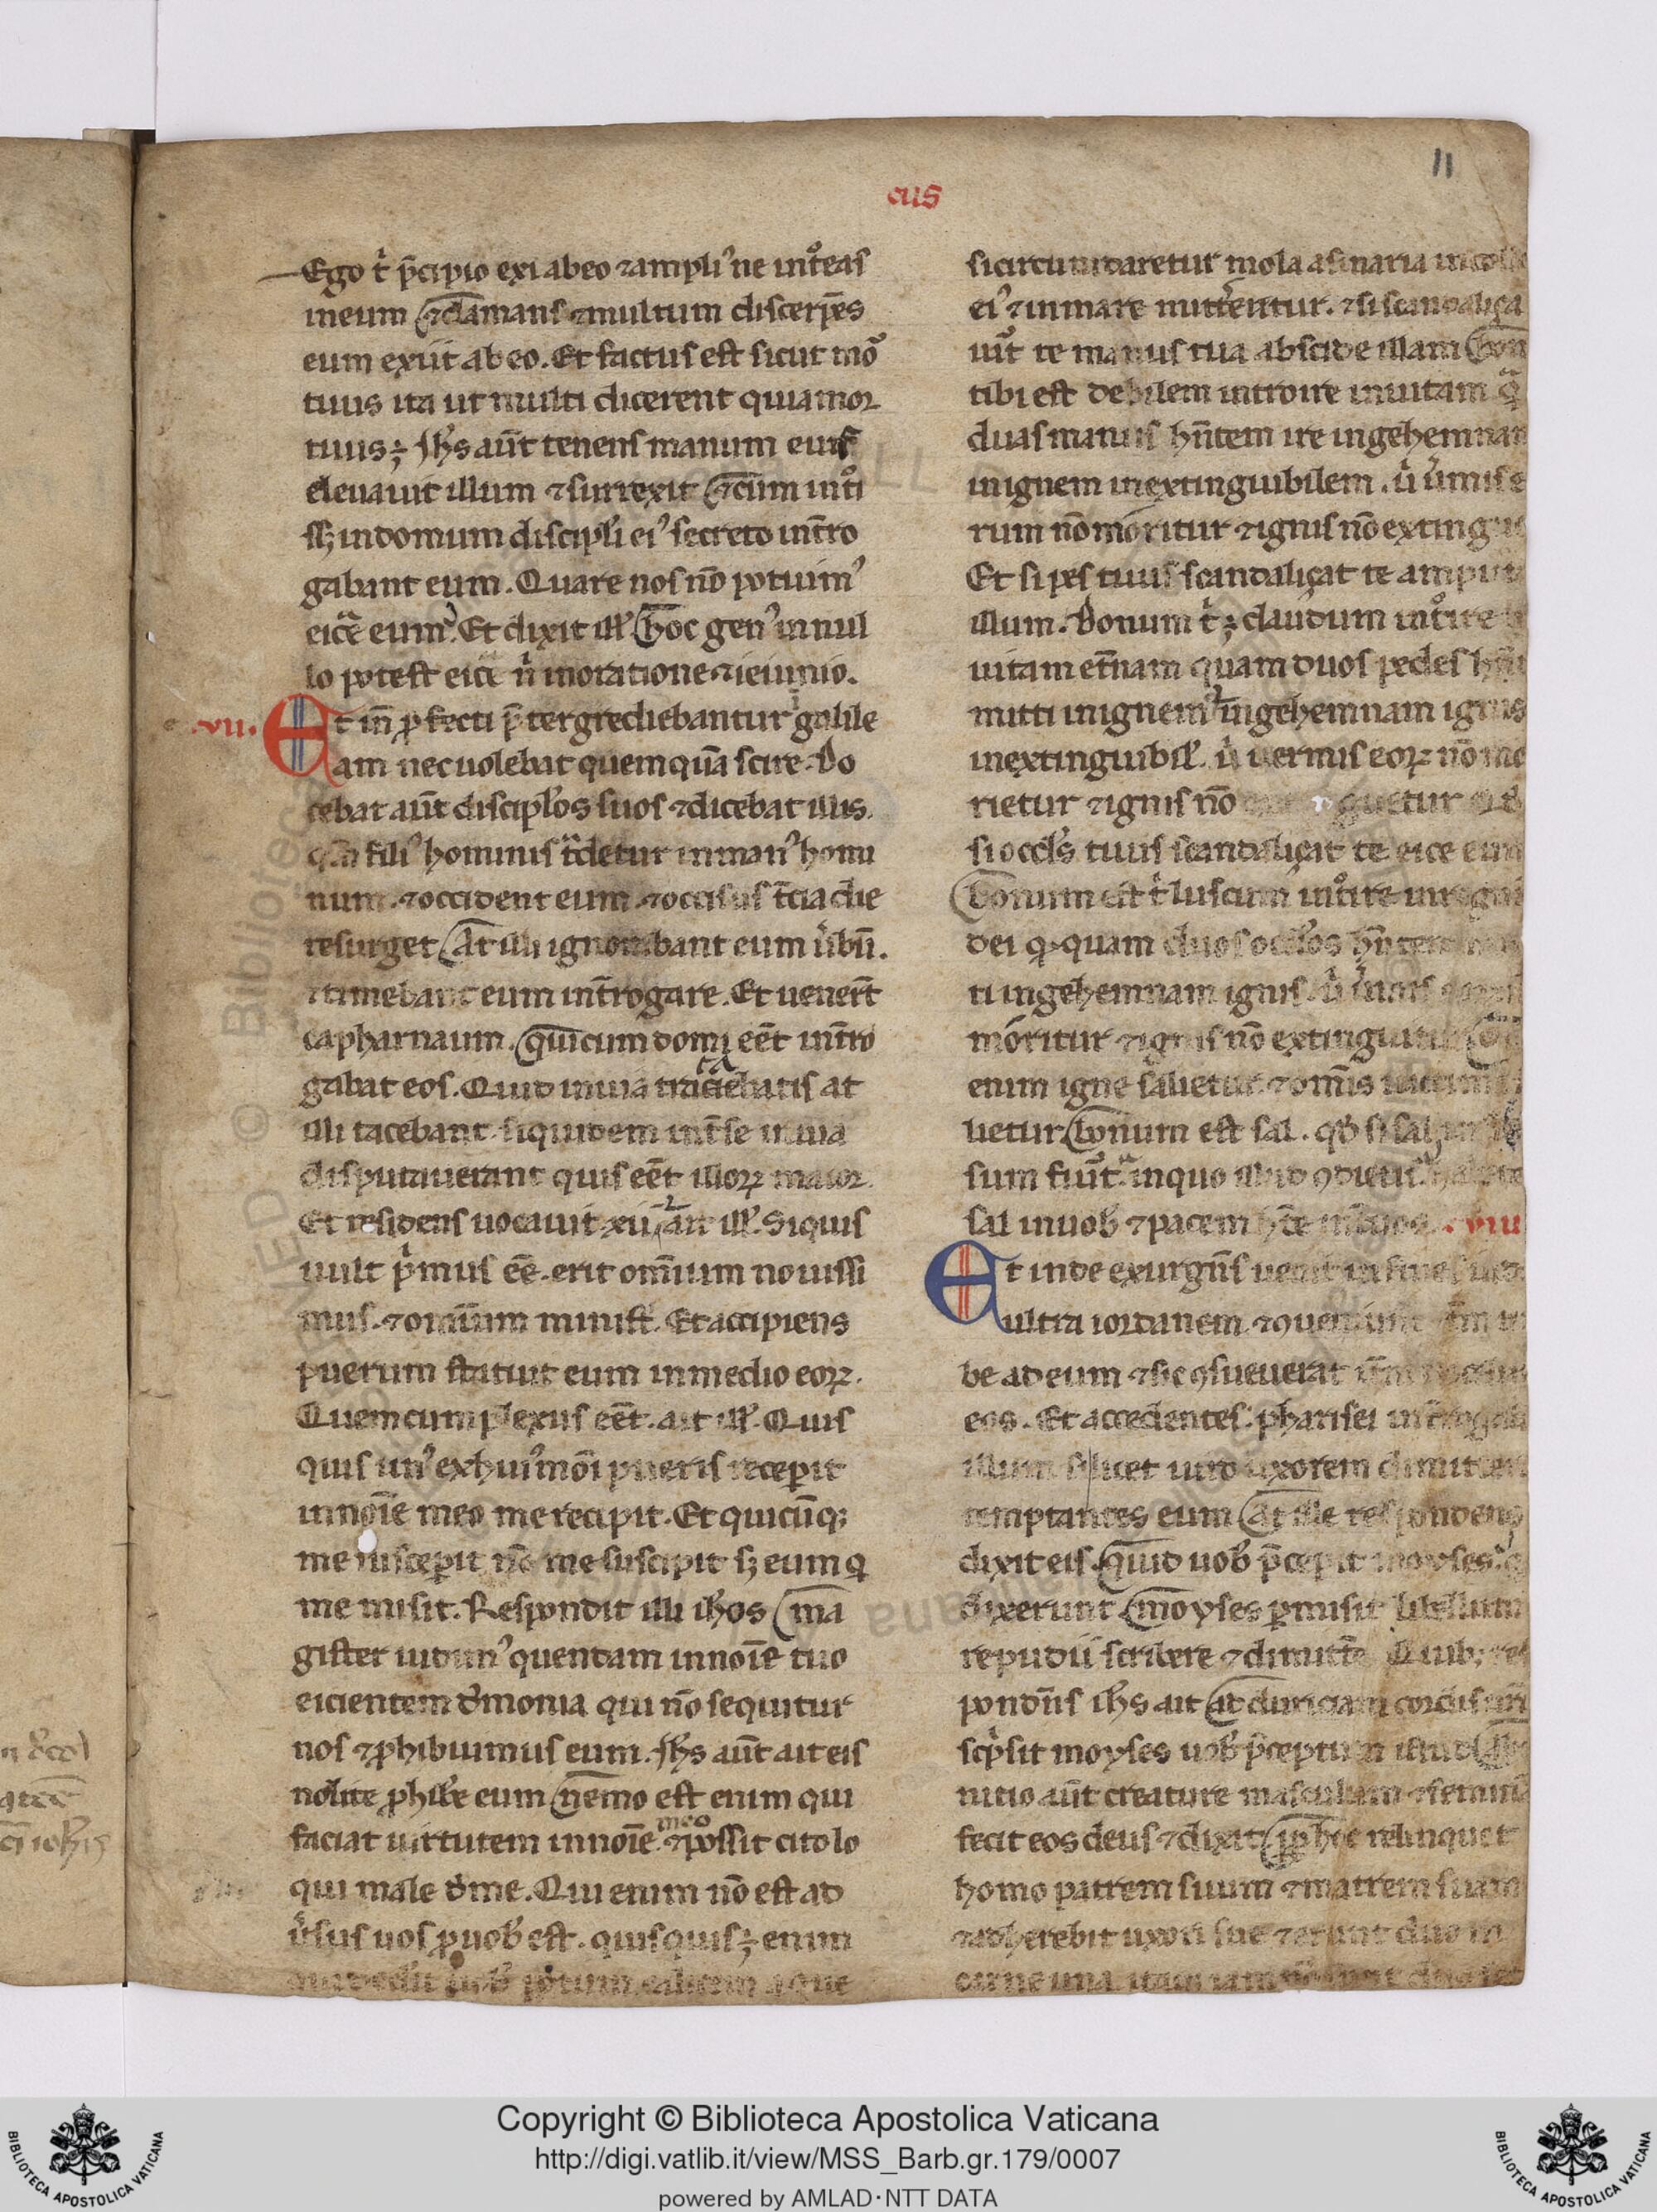 11
cus
Ego t̉ p̄cipio exi ab eo ⁊ ampliꝰ ne intͦeas
in eum ⁊ clamans ⁊ multum discerpēs
eum exiit ab eo. Et factus est sicut moꝰ
tuus ita ut multi dicerent quia mor
tuus; Ihs aūt tenens manum eius
eleuauit illum ⁊ surrexit ⁊ cum intͦi
ssꝫ in domum discipl̓i eiꝰ secreto int̄ro
gabant eum. Quare nos nō potuimꝰ
eicͤ eum. Et dixit ill̓ hoc genꝰ in nul
lo potest eicͤ nͥ in oratione ⁊ ieiunio.
.vii. Et in̄ ꝓfecti p̄tergrediebantur galile
am nec uolebat quemquā scire. Do
cebat aūt discipl̓os suos ⁊ dicebat illis.
filiꝰ hominis t̄detur in manꝰ homi
num. ⁊ occident eum. ⁊ occisus t̄cia die
resurget At illi ignorabant eum u̓bū.
⁊ timebant eum int̄rogare. Et uenert̄
capharnaum. qui cum domi eēt int̄ro
gabat eos. Quid in uia tractabatis at
illi tacebant. siquidem int̄ se in uia
disputauerant quis eēt illoꝝ maior.
Et residens uocauit xii ⁊ ait ill̓. Siquis
uult pͥmus eē. erit omīum nouissi
mus. ⁊ omīum minist̓. Et accipiens
puerum statuit eum in medio eoꝝ.
Quem cum plexus eēt. ait ill̓. Quis
quis unꝰ ex huiꝰmōi pueris receperit
in noīe meo me recipit. Et quicūqꝫ
me susceperit nō me suscipit sꝫ eum q̄
me misit. Respondit illi ihos ma
gister uidimꝰ quendam in noīe tuo
eicientem dͤmonia qui nō sequitur
nos ⁊ ꝓhibuimus eum. Ihs aūt ait eis
nolite ꝓhibͤe eum nemo est enim qui
faciat uirtutem in noīe meo ⁊ possit cito lo
qui male dͤ me. Qui enim nō est ad
u̓sus uos ꝓ uob̓ est. quisquis; enim
calicem aque
si circumdaretur mola asinaria in collo
eiꝰ ⁊ in mare mittͤentur. ⁊ si scandaliza
uit̓ te manus tua abscide illam bon
tibi est debilem introire in uitam qͣ
duas manus hn̄tem ire in gehemnam
in ignem inextinguibilem. uͥ u̓mis e
rum nō moritur ⁊ ignis nō extingui
Et si pes tuus scandalizat te amputa
illum. Bonum t̉; claudum intͦire
uitam et̄nam quam duos pedes hn̄t
mitti in ignem in gehemnam ignis
inextinguibil̓. uͥ uermis eoꝝ nō mo
rietur ⁊ ignis nō guetur
si occl̓s tuus scandalizat te eice eum
bonum est t̉ luscum intͦire in regni
dei qͣ quam duos occl̓os hn̄tem
ti in gehemnam ignis. uͥ
moritur ⁊ ignis nō extinguitur
enim igne salietur ⁊ omīs uictima
lietur bonum est sal. qd̓ si sal
sum fuit̓ in quo illud ꝯdietis
sal in uob̓ ⁊ pacem int̄ uos .viii
Et inde exurgn̄s uenit in fines iude
ultra iordanem. ⁊ ꝯueniunt
be ad eum ⁊ sic ꝯsueuerat
eos. Et accedentes pharisei int̄rogaba
illum si licet uiro uxorem dimittere
temptantes eum At ille respondens
dixit eis. quid uob̓ p̄cepit moyses
dixerunt moyses ꝑmisit libellum
repudii scribere ⁊ dimitt̓e. Quibꝫ res
pondn̄s ihs ait ad duriciam cordis
scͥpsit moyses uob̓ p̄ceptum istud
nitio aūt creature masculum ⁊ feminā
fecit eos deus ⁊ dixit ꝓp̄ hoc relinquet
homo patrem suum ⁊ matrem suam
⁊ adherebit uxori sue ⁊ erunt duo in
carne una. itaqꝫ iam
Copyright © Biblioteca Apostolica Vaticana
http://digi.vatlib.it/view/MSS_Barb.gr.179/0007
powered by AMLAD·NTT DATA
BIBLIOTECA APOSTOLICA VATICANA
BIBLIOTECA APOSTOLICA VATICANA